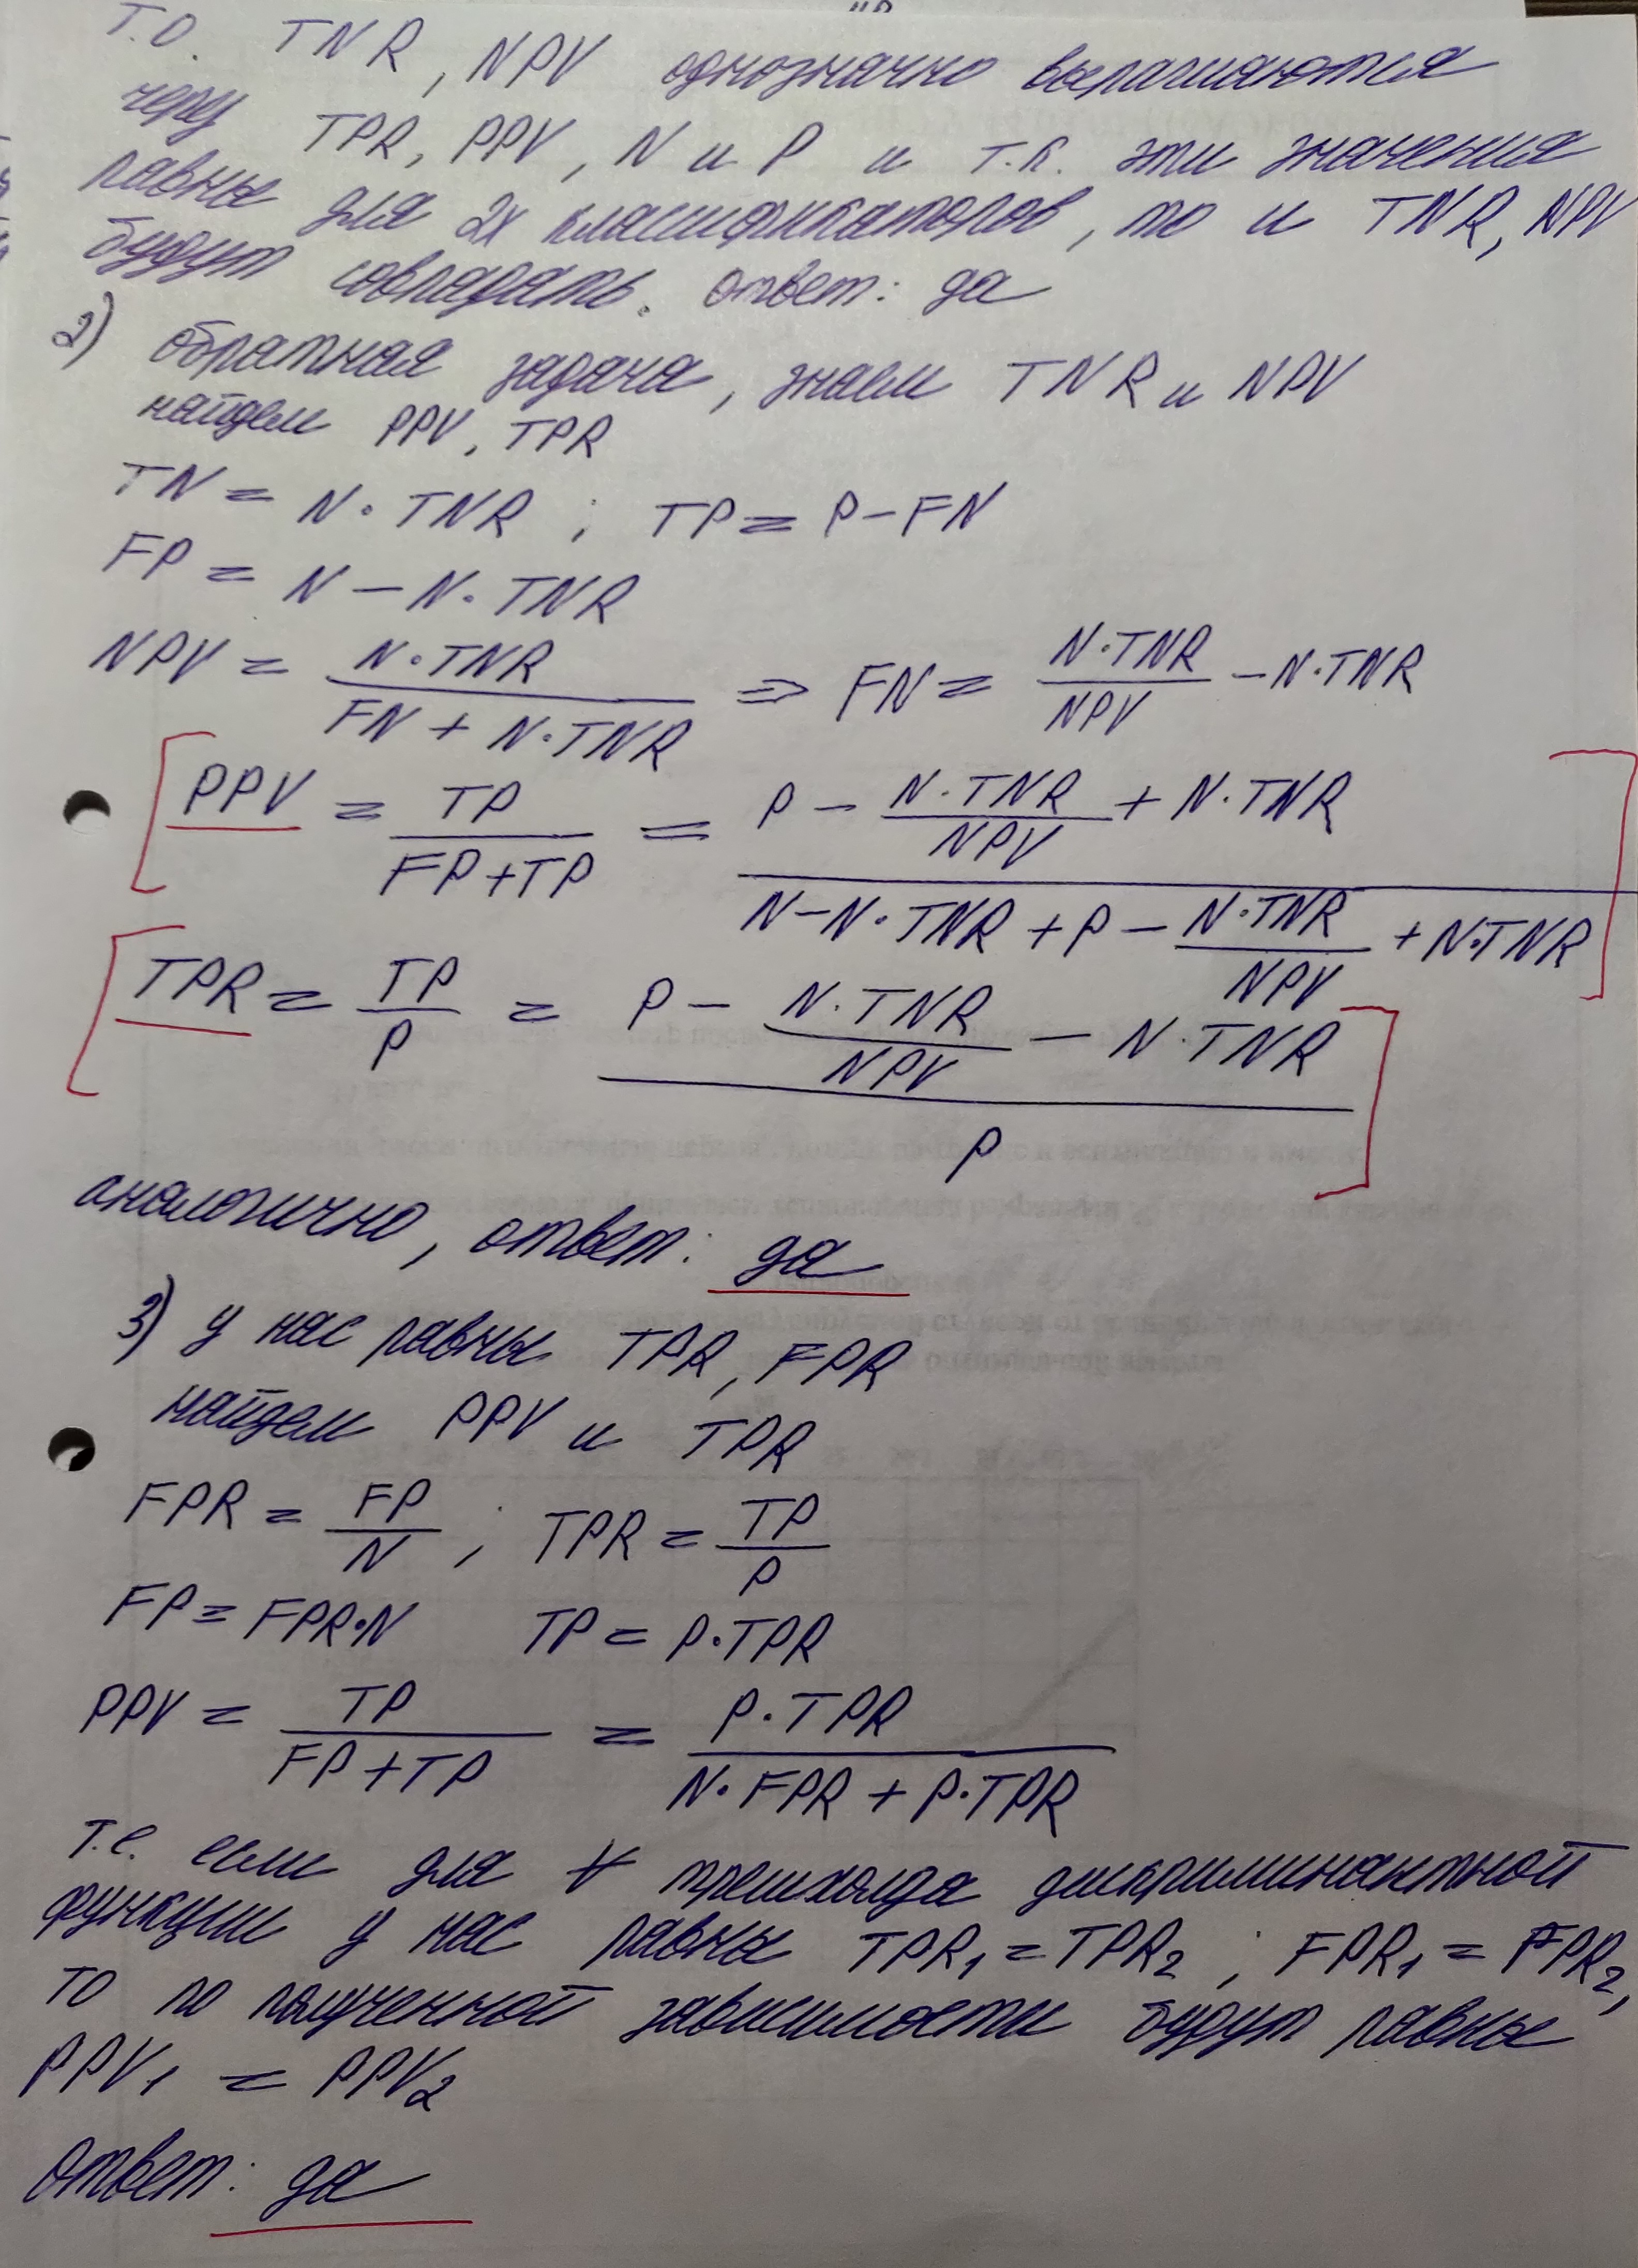 Т.О. TNR, NPV однозначно выражаются
через TPR, PPV, N и P и т.к. эти значения
равны для 2х классификаторов, то и TNR, NPV
будут совпадать. ответ: да
2) обратная задача, знаем TNR и NPV
найдем PPV, TPR
TN = N·TNR ; TP = P-FN
FP = N - N·TNR
NPV = N·TNR / (FN + N·TNR) ⇒ FN = N·TNR / NPV - N·TNR
[PPV = TP / (FP+TP) = (P - N·TNR / NPV + N·TNR) / (N-N·TNR + P - N·TNR / NPV + N·TNR)]
[TPR = TP / P = (P - N·TNR / NPV - N·TNR) / P]
аналогично, ответ: да
3) у нас равны TPR, FPR
найдем PPV и TPR
FPR = FP / N ; TPR = TP / P
FP = FPR·N TP = P·TPR
PPV = TP / (FP+TP) = P·TPR / (N·FPR + P·TPR)
т.е. если для ∀ трешхолда дискриминантной
функции у нас равны TPR₁ = TPR₂ ; FPR₁ = FPR₂,
то по полученной зависимости будут равны
PPV₁ = PPV₂
ответ: да